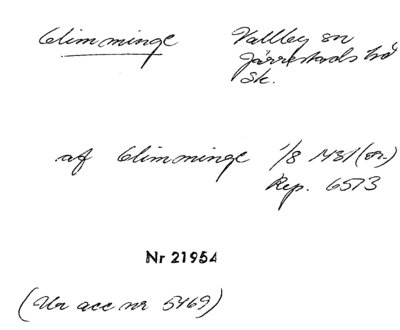 Glimminge Vallby sn
Järrestads hd
Sk.
af Glimminge 1/8 1431 (or.)
Rep. 6573
Nr 21954
(Ur acc nr 5469)